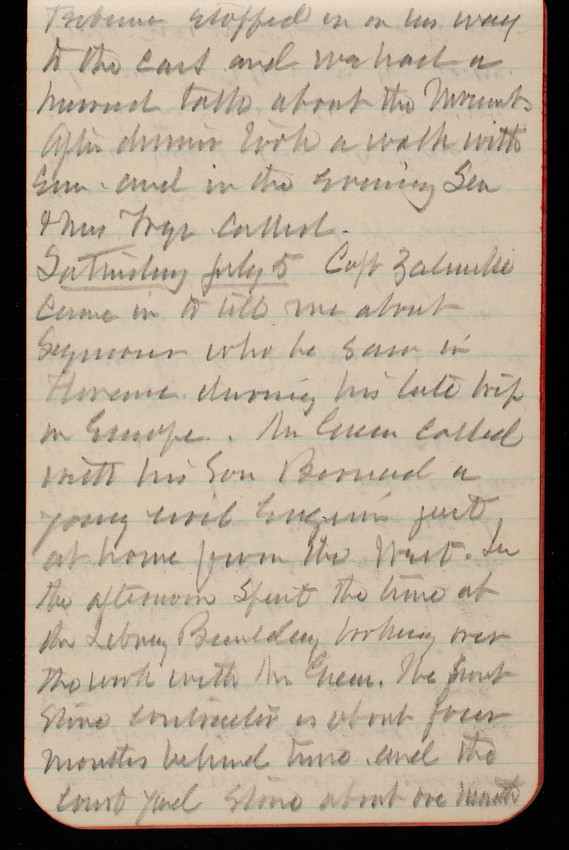 Tribune stopped in on his way
to the cars and we had a
hurried talk about the Monument
After dinner took a walk with
Em. and in the evening Gen
& Mrs Frye called.
Saturday July 5 Capt Zalinski
came in to tell me about
Seymour who he saw in
Florence during his late trip
in Europe. Mr Green called
with his son Bernard a
young civil Engineer just
at home from the West. In
the afternoon spent the time at
the Library Building looking over
the work with Mr Green. The front
stone contractor is about four
months behind time and the
Court yard stone about one month